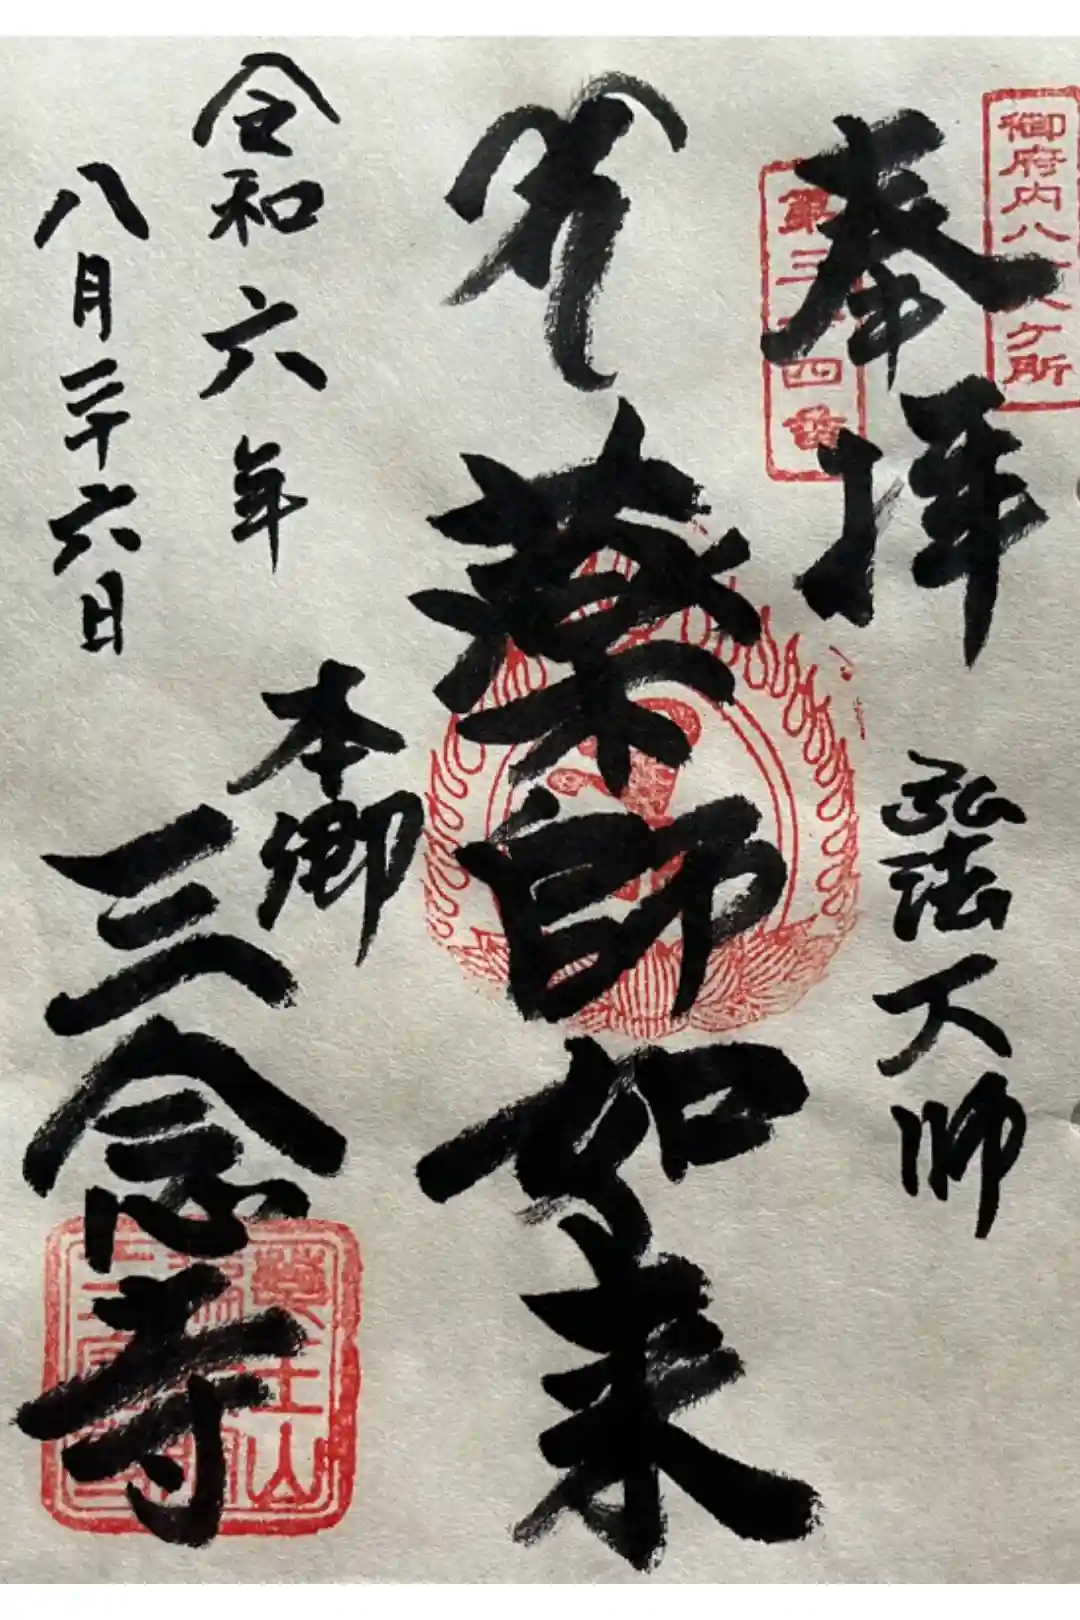 御府内八十八ヶ所
第三十四番
奉拝
弘法大師
薬師如来
令和六年
八月二十六日
本郷
三念寺